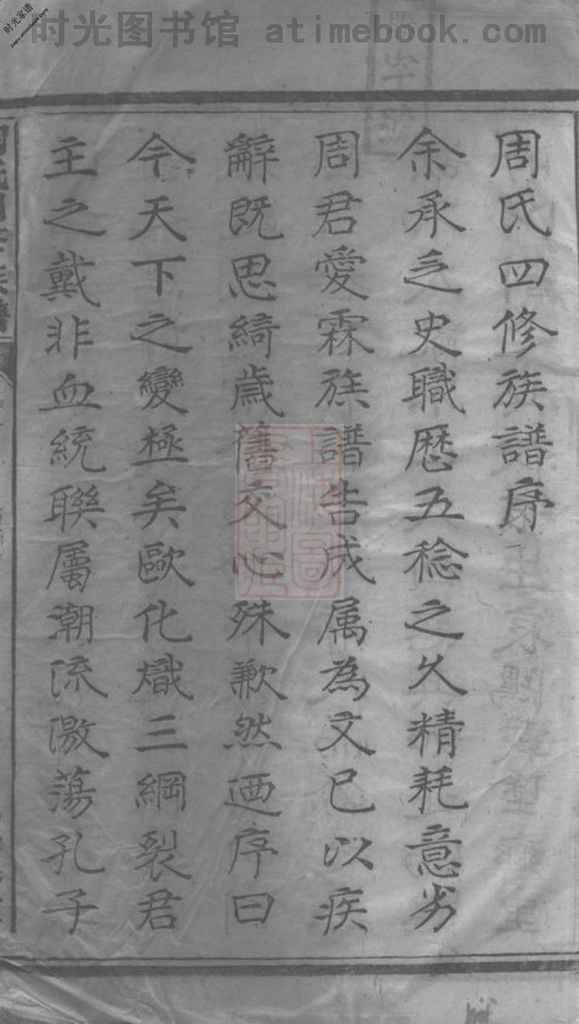 时光图书馆 atimebook.com
时光家谱
周氏四修族譜序
余承乏史職歷五稔之久精耗意劣
周君愛霖族譜告成属為文已以疾
辭既思綺歲舊交心殊歉然迺序曰
今天下之變極矣歐化熾三綱裂君
主之戴非血統聯屬潮流激蕩孔子